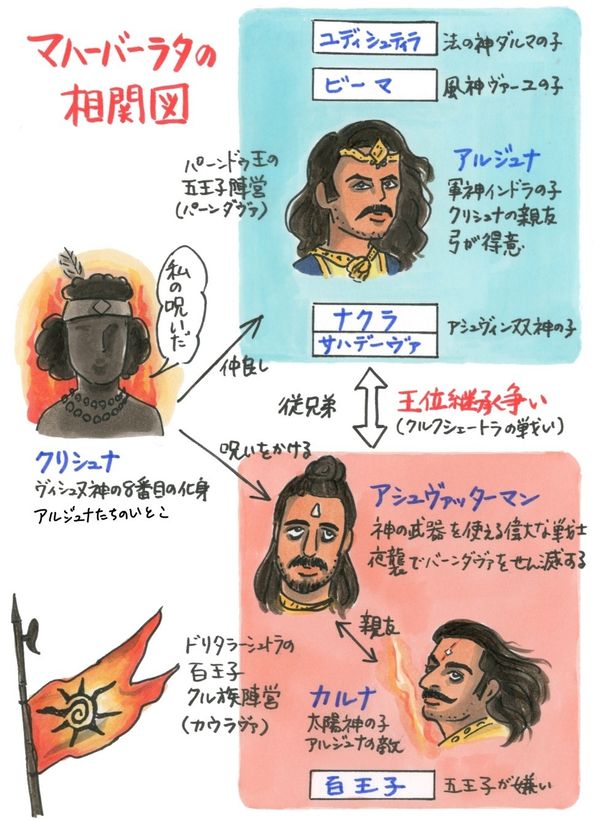 マハーバーラタの
相関図
ユディシュティラ 法の神ダルマの子
ビーマ 風神ヴァーユの子
パーンドゥ王の
五王子陣営
(パーンダヴァ)
アルジュナ
軍神インドラの子
クリシュナの親友
弓が得意
ナクラ
サハデーヴァ
アシュヴィン双神の子
私の呪いだ
仲良し
クリシュナ
ヴィシュヌ神の8番目の化身
アルジュナたちのいとこ
従兄弟
王位継承争い
(クルクシェートラの戦い)
呪いをかける
アシュヴァッターマン
神の武器を使える偉大な戦士
夜襲でパーンダヴァをせん滅する
親友
ドリタラーシュトラの
百王子
クル族陣営
(カウラヴァ)
カルナ
太陽神の子
アルジュナの敵
百王子 五王子が嫌い